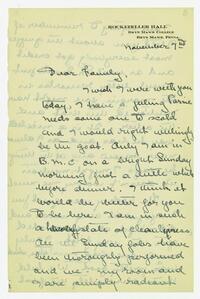 ROCKEFELLER HALL
BRYN MAWR COLLEGE
BRYN MAWR, PENNA.
November 7th
Dear Family,
I wish I were with you
today. I have a feeling
needs some one to scold
and I would right willingly
be the goat. Only I am in
B.M.C. on a bright Sunday
morning just a little while
before dinner. I think it
would be better for you
to be here. I am in such
a state of cleanliness
All my Sunday jobs have
been thoroughly performed
and we - my room and
I are simply radiant